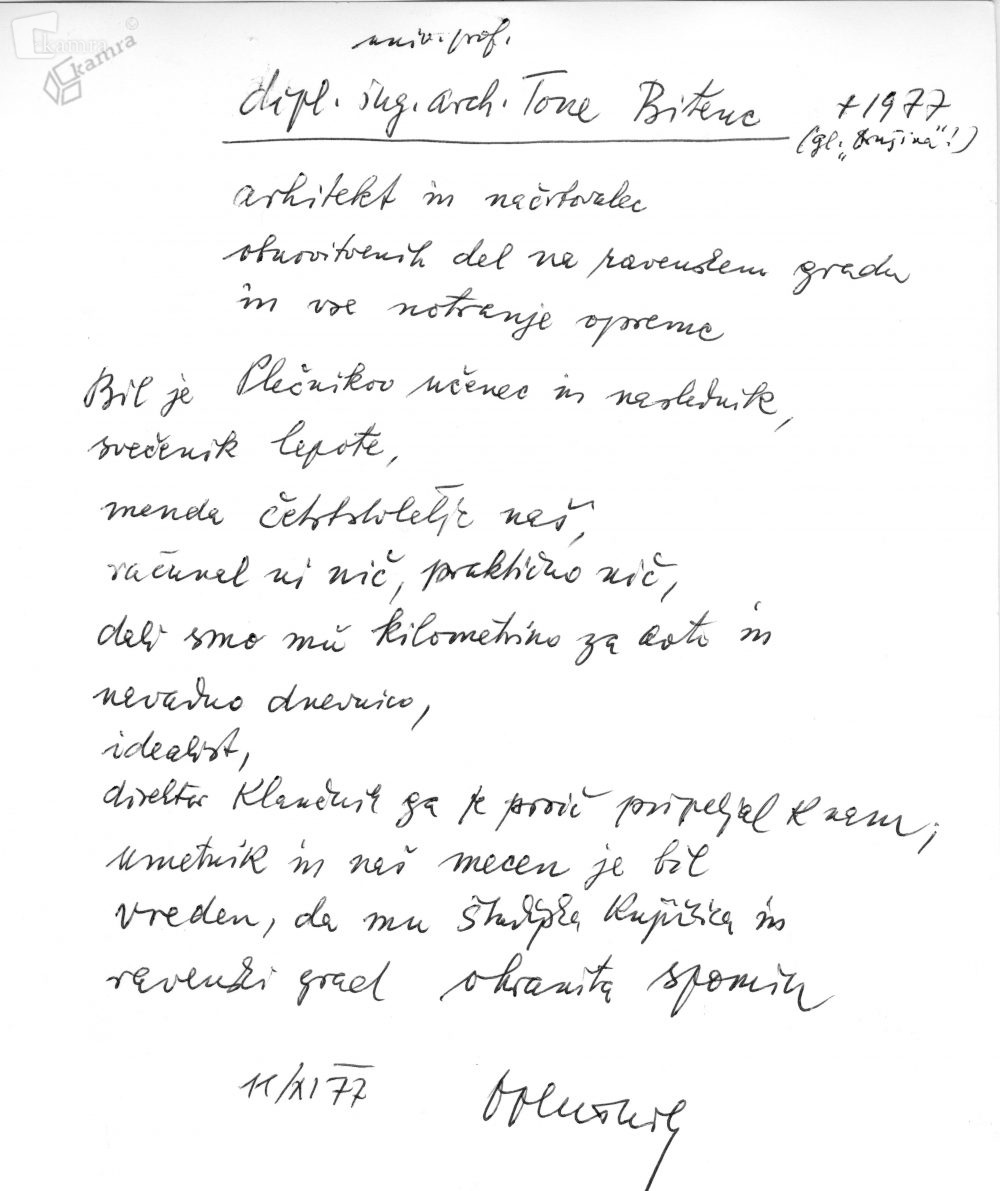 kamra ©
kamra
univ. prof.
dipl. ing. arch. Tone Bitenc +1977
(gl. „Družina"!)
arhitekt in načrtovalec
obnovitvenih del na ravenskem gradu
in vse notranje opreme
Bil je Plečnikov učenec in naslednik,
svečenik lepote,
menda četrtstoletje naš,
računal ni nič, praktično nič,
dali smo mu kilometrino za avto in
navadno dnevnico,
idealist,
direktor Klančnik ga je prvič pripeljal k nam;
umetnik in naš mecen je bil
vreden, da mu študijska knjižica in
ravenski grad ohranita spomin
11/XI 77